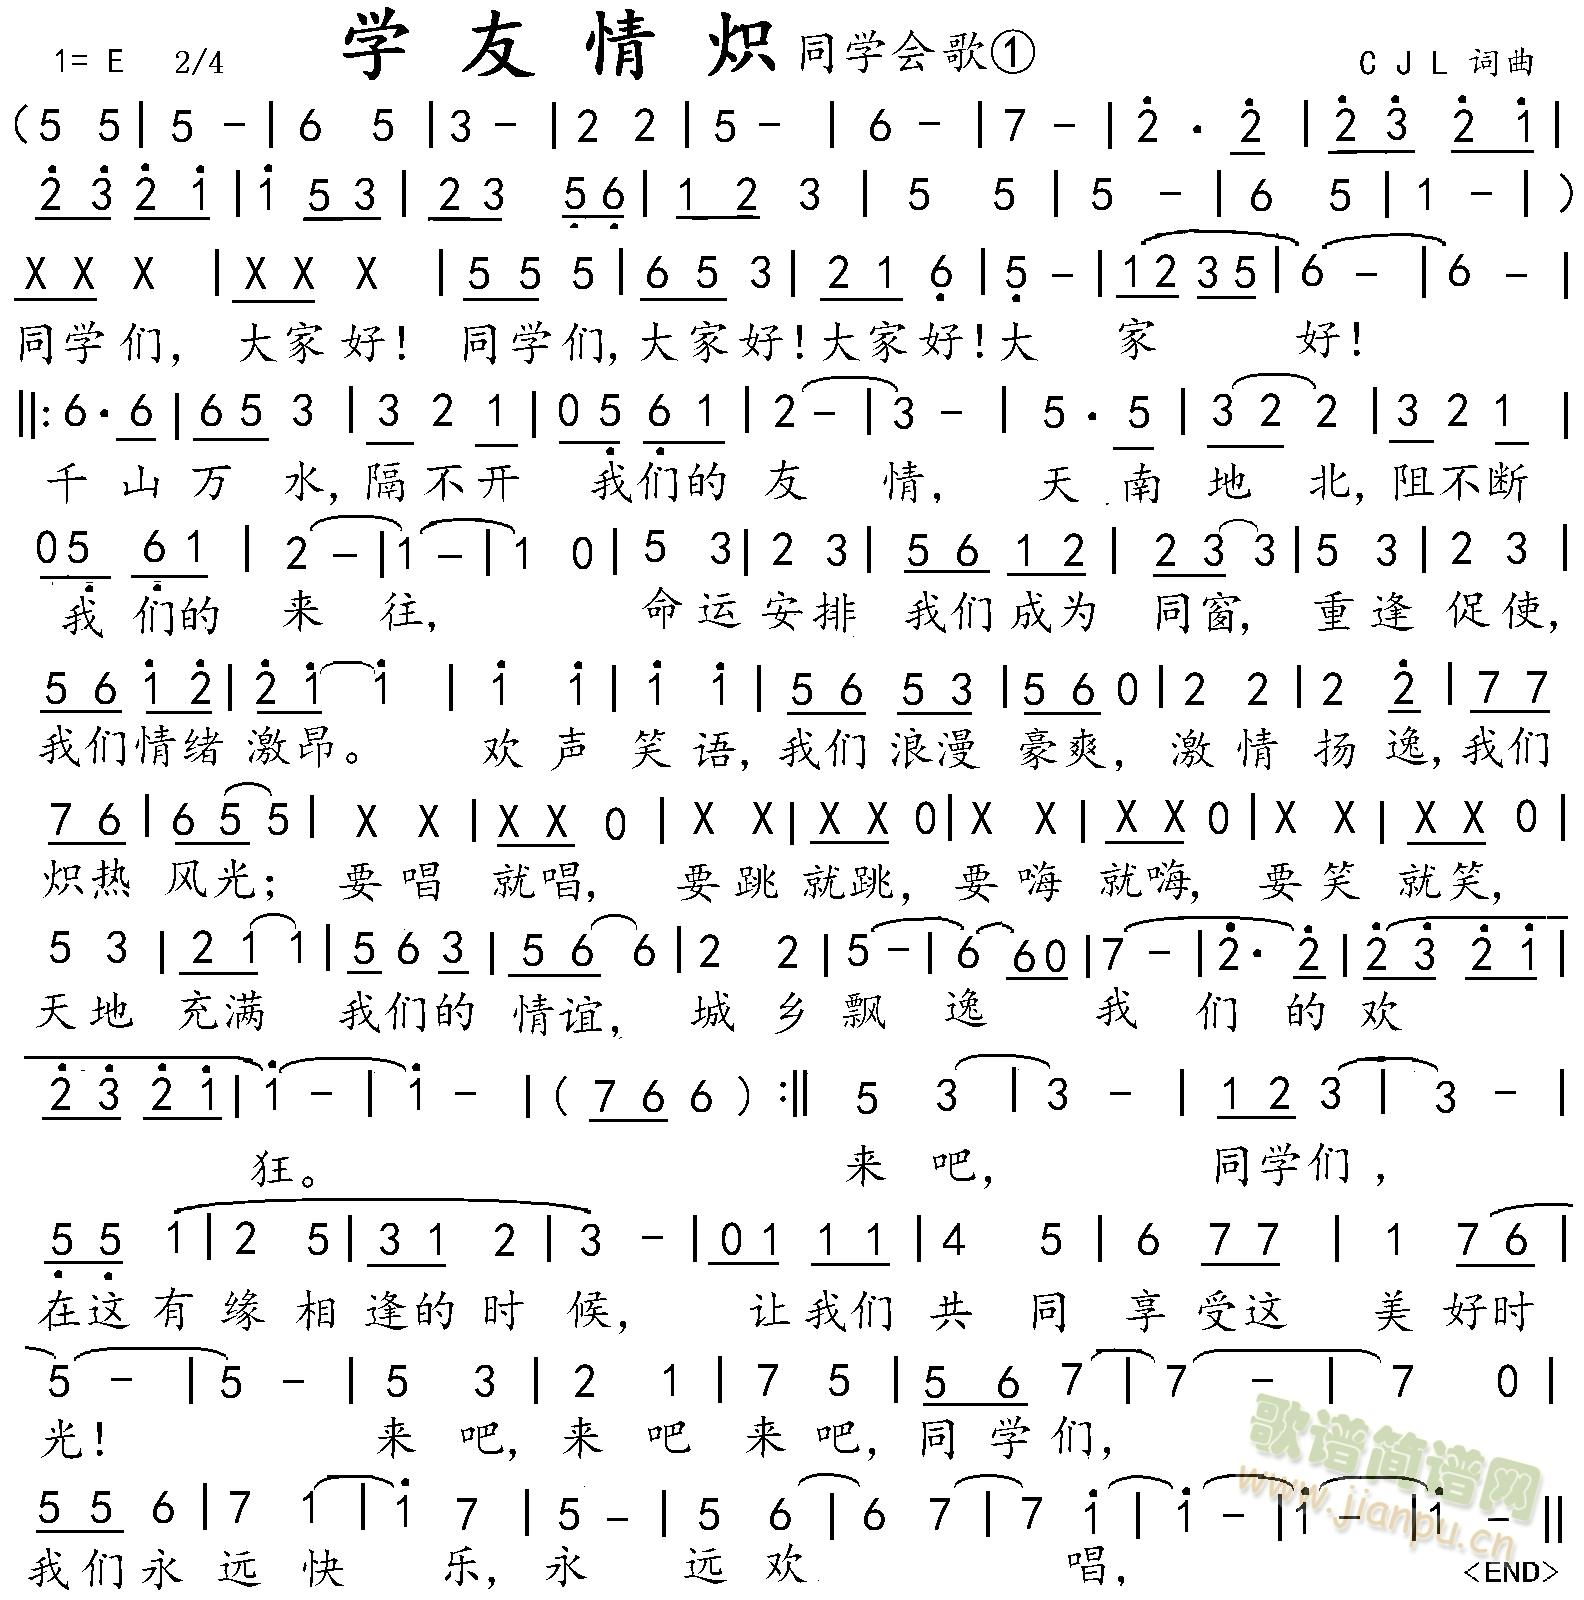 1= E 2/4 学友情炽 同学会歌① C J L 词曲
( 5 5 | 5 - | 6 5 | 3 - | 2 2 | 5 - | 6 - | 7 - | 2̇ · 2̇ | 2̇ 3̇ 2̇ 1̇ |
2̇ 3̇ 2̇ 1̇ | 1̇ 5 3 | 2 3 5̣ 6̣ | 1 2 3 | 5 5 | 5 - | 6 5 | 1 - | )
X X X | X X X | 5 5 5 | 6 5 3 | 2 1 6̣ | 5̣ - | 1 2 3 5 | 6 - | 6 - |
同学们, 大家好! 同学们, 大家好! 大家好! 大家好!
‖: 6 · 6 | 6 5 3 | 3 2 1 | 0 5̣ 6̣ 1 | 2 - | 3 - | 5 · 5 | 3 2 2 | 3 2 1 |
千山万水, 隔不开 我们的友情, 天南地北, 阻不断
0 5̣ 6̣ 1 | 2 - | 1 - | 1 0 | 5 3 | 2 3 | 5 6 1 2 | 2 3 3 | 5 3 | 2 3 |
我们的来往, 命运安排我们成为同窗, 重逢促使,
5 6 1̇ 2̇ | 2̇ 1̇ 1̇ | 1̇ 1̇ | 1̇ 1̇ | 5 6 5 3 | 5 6 0 | 2 2 | 2 2̇ | 7 7
我们情绪激昂。 欢声笑语, 我们浪漫豪爽, 激情扬逸, 我们
7 6 | 6 5 5 | X X | X X 0 | X X | X X 0 | X X | X X 0 | X X | X X 0 |
炽热风光; 要唱就唱, 要跳就跳, 要嗨就嗨, 要笑就笑,
5 3 | 2 1 1 | 5 6 3 | 5 6 6 | 2 2 | 5 - | 6 6 0 | 7 - | 2̇ · 2̇ | 2̇ 3̇ 2̇ 1̇ |
天地充满我们的情谊, 城乡飘逸我们的欢
2̇ 3̇ 2̇ 1̇ | 1̇ - | 1̇ - | ( 7 6 6 ) :‖ 5 3 | 3 - | 1 2 3 | 3 - |
狂。 来吧, 同学们,
5̣ 5̣ 1 | 2 5 | 3 1 2 | 3 - | 0 1 1 1 | 4 5 | 6 7 7 | 1 7 6 |
在这有缘相逢的时候, 让我们共同享受这美好时
5 - | 5 - | 5 3 | 2 1 | 7 5 | 5 6 7 | 7 - | 7 0 |
光! 来吧, 来吧来吧, 同学们,
歌谱简谱网
www.jianpu.cn
5 5 6 | 7 1 | 1̇ 7 | 5 - | 5 6 | 6 7 | 7 1̇ | 1̇ - | 1̇ - | 1̇ - ‖
我们永远快乐, 永远欢唱, <END>